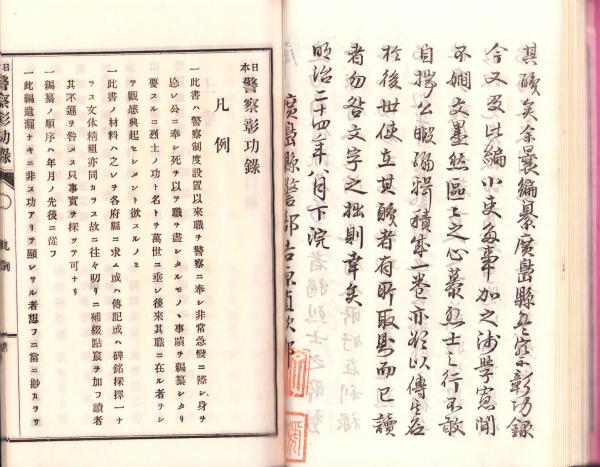 其硪矣余曩編纂廣島縣警察彰功錄
今又及此編小吏多事加之淺學寡聞
不嫺文墨然區々之心慕烈士之行不敢
自揣公暇編輯積成一卷亦欲以傳其名
於後世使立其職者有所取則而已讀
者勿咎文字之拙則幸矣
明治二十四年八月下浣
廣島縣警部吉原直次郎
日本警察彰功錄
凡例
一此書ハ警察制度設置以來職ヲ警察ニ奉シ非常急變ニ際シ身ヲ
忘レ公ニ奉シ死ヲ以テ職ヲ盡シタルモノヽ事蹟ヲ編纂シタリ
要スルニ烈士ノ功ト名トヲ萬世ニ垂レ後來其職ニ在ル者ヲシ
テ觀感興起セシメント欲スルノミ
一此書ノ材料ハ之レヲ各府縣ニ求メ或ハ傳記或ハ碑銘採擇一ナ
ラス文体精粗亦同カラス故ニ往々叨リニ補綴點竄ヲ加フ讀者
其不遜ヲ咎メス只事實ヲ採ツテ可ナリ
一編纂ノ順序ハ年月ノ先後ニ從フ
一此編遺漏ナキニ非ス功アリテ顯レサル者想フニ當ニ尠カラサ
日本警察彰功錄
凡例